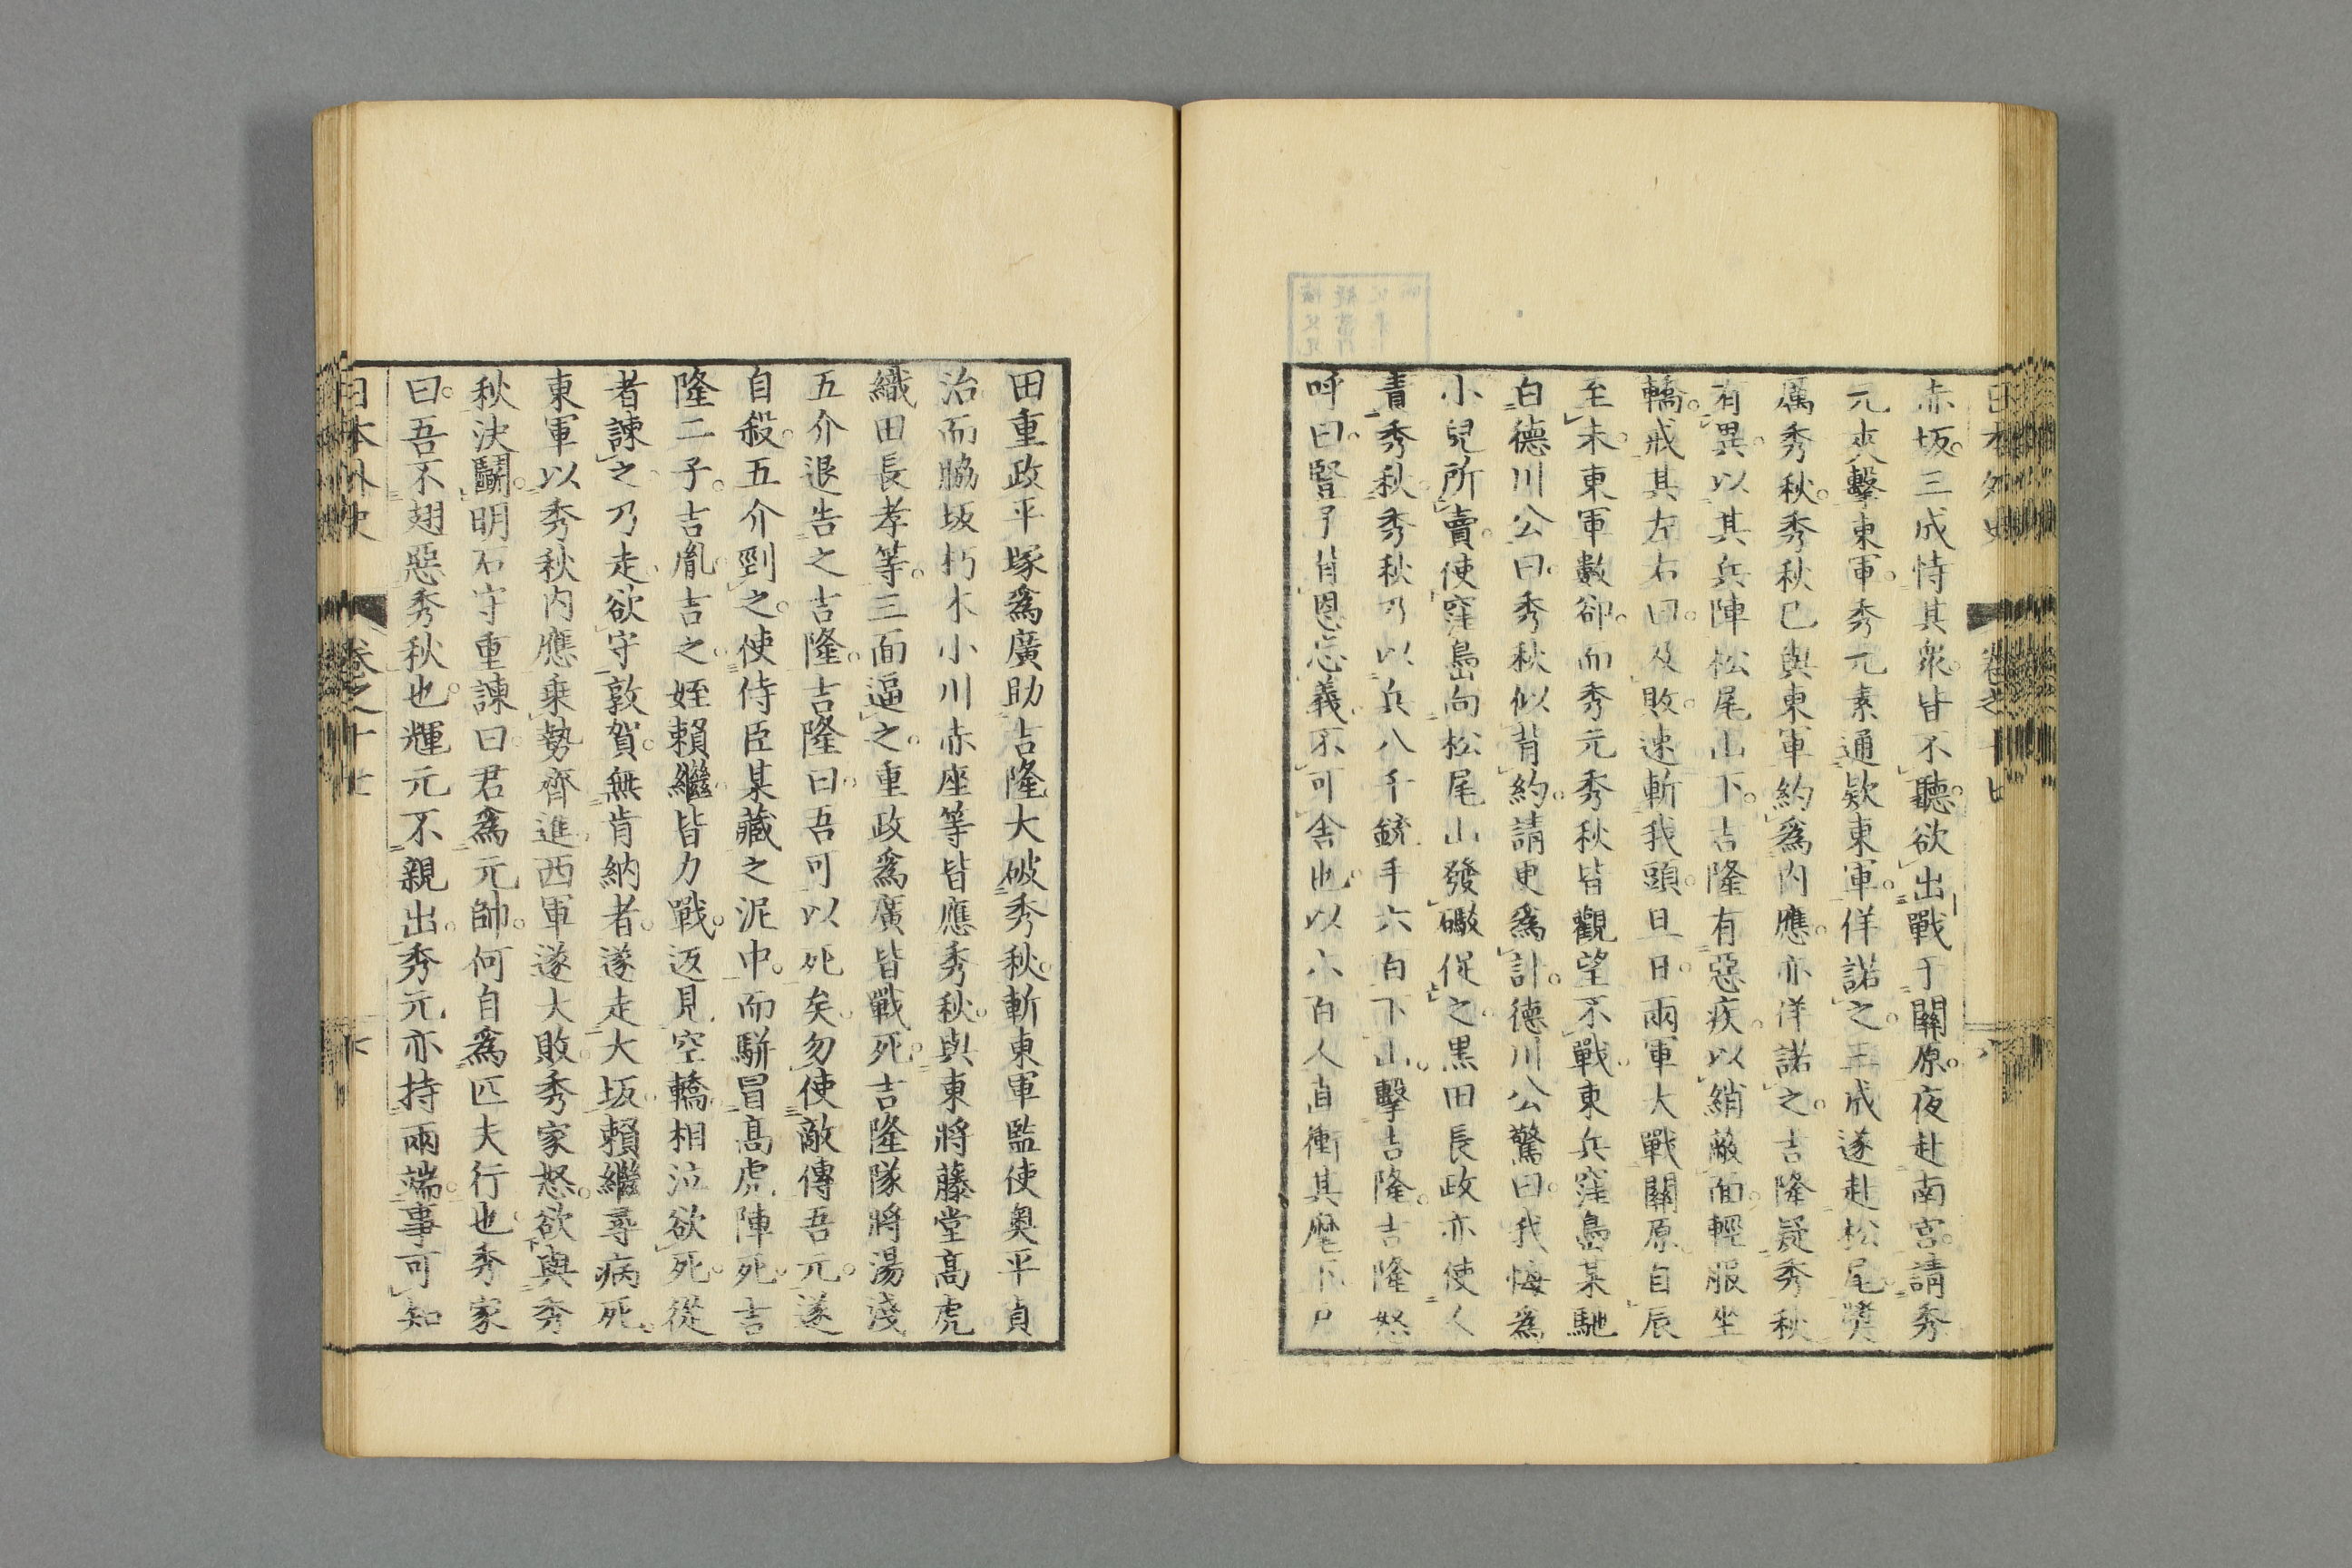 日本外史 卷之十七
赤坂。三成恃其衆。皆不聽。欲出戰于關原。夜赴南宮。請秀
元夾擊東軍。秀元素通欵東軍。佯諾之。三成遂赴松尾奬
厲秀秋。秀秋已與東軍約爲內應。亦佯諾之。吉隆疑秀秋
有異。以其兵陣松尾山下。吉隆有惡疾。以綃蔽面。輕服坐
轎。戒其左右曰。及敗。速斬我頭。旦日。兩軍大戰關原。自辰
至未。東軍數卻。而秀元秀秋皆觀望不戰。東兵窪島某馳
白德川公曰。秀秋似背約。請更爲計。德川公驚曰。我悔爲
小兒所賣。使窪島向松尾山發礮促之。黑田長政亦使人
責秀秋。秀秋乃以兵八千銃手六百下山。擊吉隆。吉隆怒
呼曰。豎子背恩忘義。不可舍也。以六百人直衝其麾下戸
田重政平塚爲廣助吉隆大破秀秋。斬東軍監使奧平貞
治而脇坂朽木小川赤座等皆應秀秋。與東將藤堂高虎
織田長孝等。三面逼之。重政爲廣皆戰死。吉隆隊將湯淺
五介退告之吉隆。吉隆曰。吾可以死矣。勿使敵傳吾元。遂
自殺。五介剄之。使侍臣某藏之泥中。而騈冒高虎陣死。吉
隆二子。吉胤。吉之。姪賴繼。皆力戰。返見空轎。相泣欲死。從
者諫之。乃走。欲守敦賀。無肯納者。遂走大坂。賴繼尋病死。
東軍以秀秋內應。乘勢齊進。西軍遂大敗。秀家怒。欲與秀
秋決鬭。明石守重諫曰。君爲元帥。何自爲匹夫行也。秀家
曰。吾不翅惡秀秋也。輝元不親出。秀元亦持兩端。事可知
日本外史 卷之十七